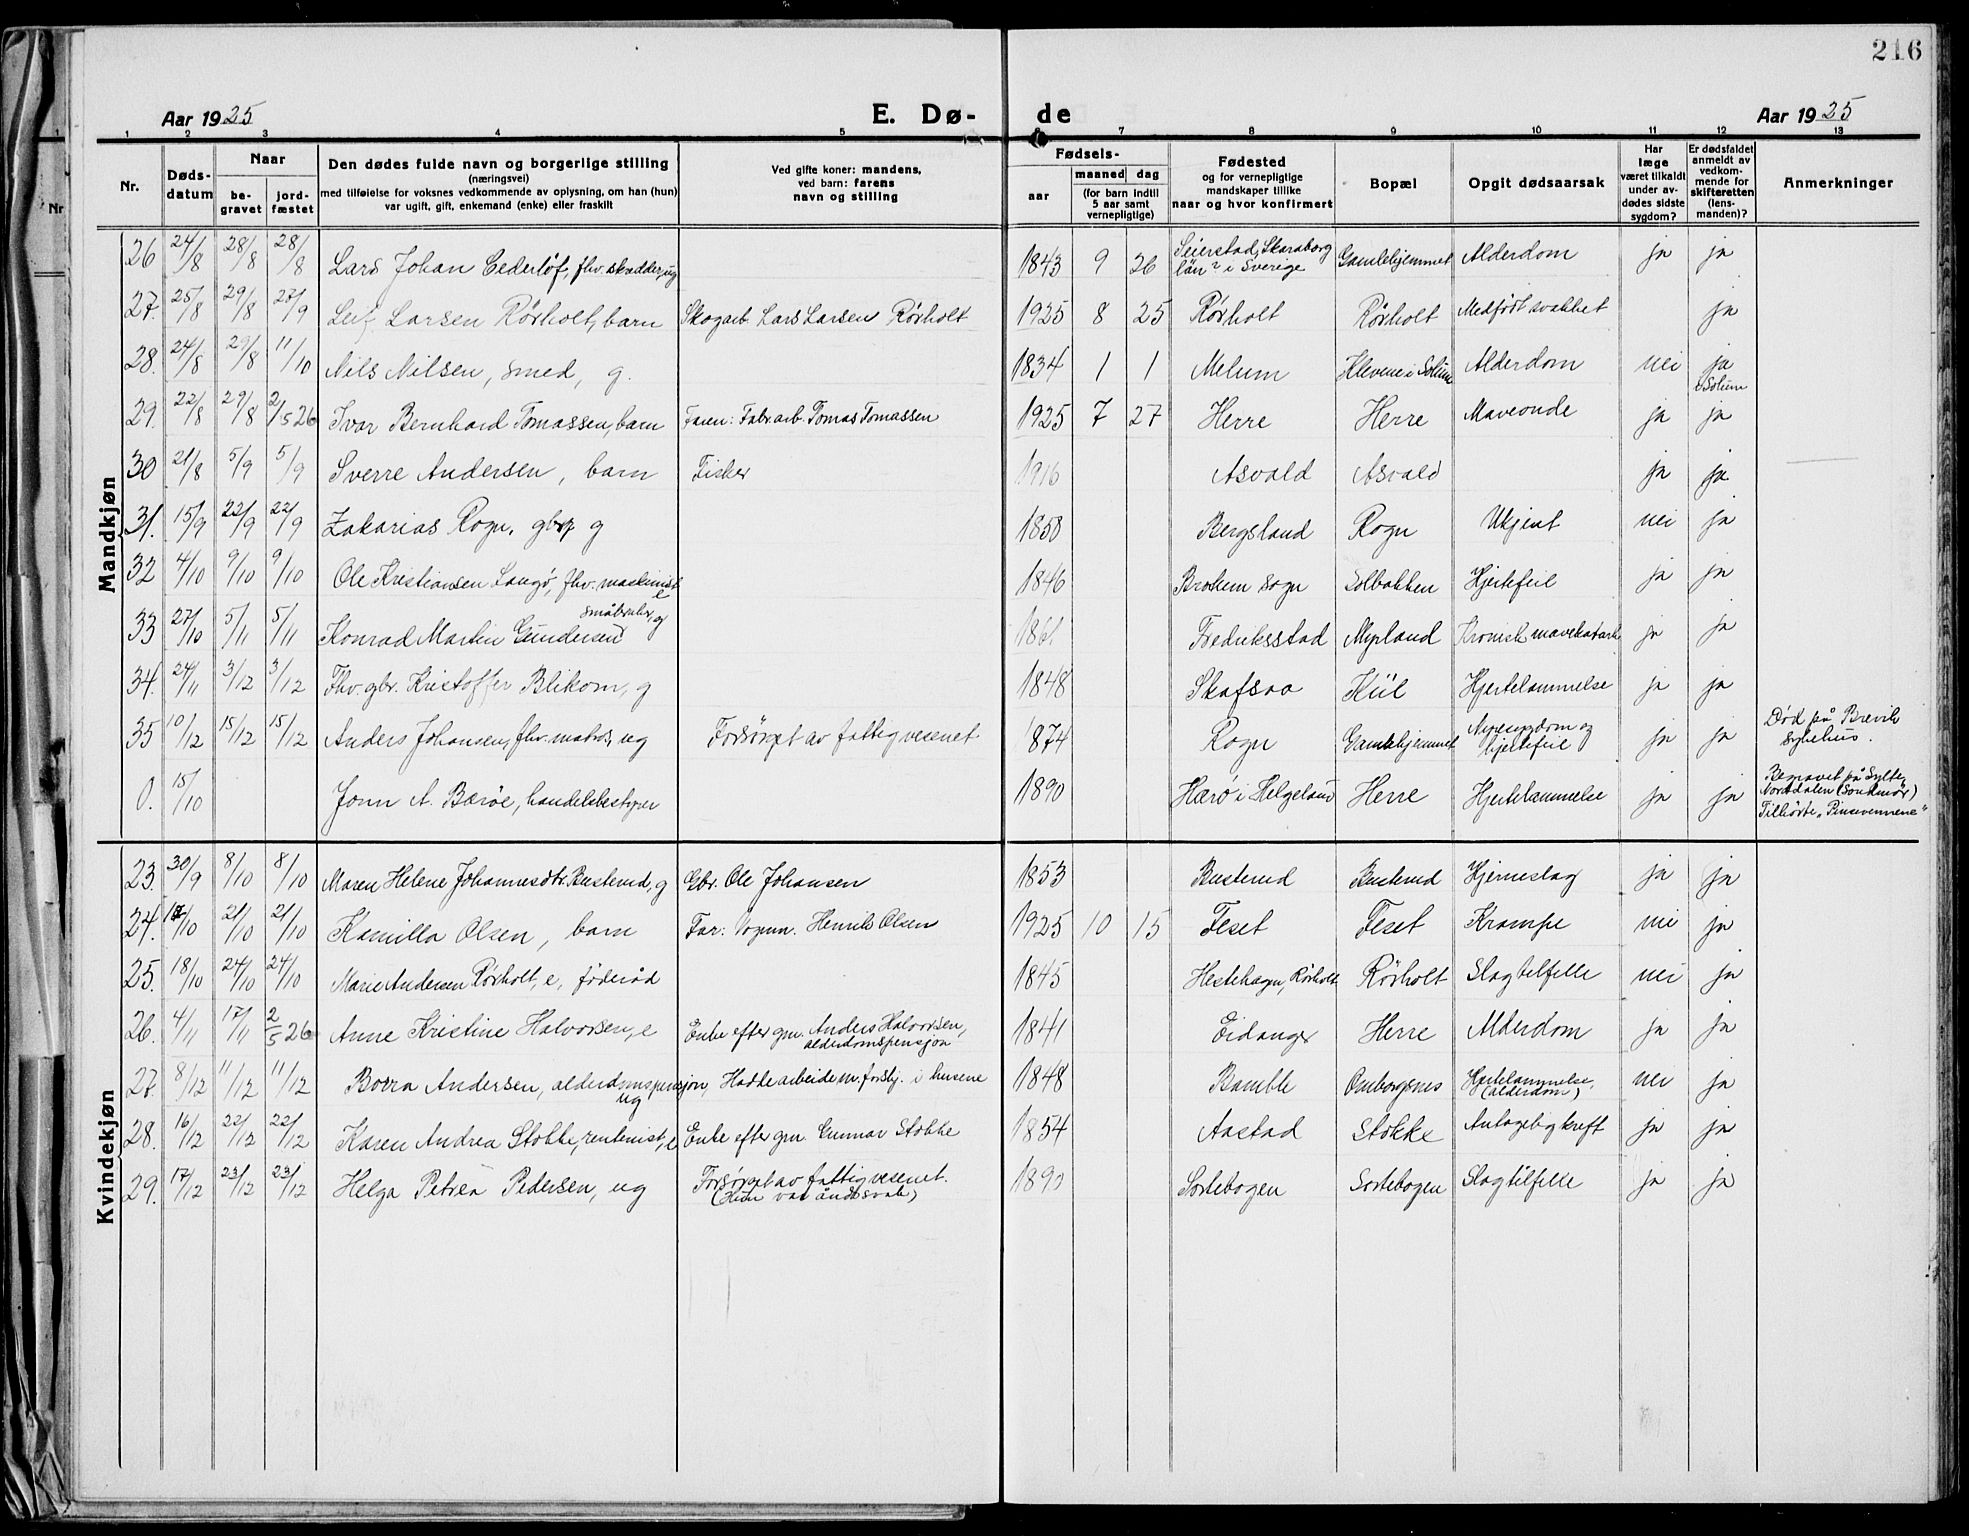 216
Aar 1925 E. Dø- de Aar 1925
1 2 3 4 5 6 7 8 9 10 11 12 13
Nr. Dødsdatum Naar begravet jordfæstet Den dødes fulde navn og borgerlige stilling (næringsvei) med tilføielse for voksnes vedkommende av oplysning, om han (hun) var ugift, gift, enkemand (enke) eller fraskilt Ved gifte koner: mandens, ved barn: farens navn og stilling Fødsels- aar maaned dag (for barn indtil 5 aar samt vernepligtige) Fødested og for vernepligtige mandskaper tillike naar og hvor konfirmert Bopæl Opgit dødsaarsak Har læge været tilkaldt under avdødes sidste sygdom? Er dødsfaldet anmeldt av vedkommende for skifteretten (lensmanden)? Anmerkninger
Mandkjøn
26 24/8 28/8 28/8 Lars Johan Cederløf, fhv. skrædder, ug 1843 9 26 Seierstad, Skaraborg län? i Sverige Gamlehjemmet Alderdom ja ja
27. 25/8 29/8 27/9 Leif Larsen Rørholt, barn Skogarb. Lars Larsen Rørholt 1925 8 25 Rørholt Rørholt Medfødt svakhet ja
28. 24/8 29/8 11/10 Nils Nilsen, smed, g. 1834 1 1 Melum Klevene i Solum Alderdom nei ja i Solum
29. 22/8 29/8 2/5 26 Ivar Bernhard Tomassen, barn Faren: Fabr. arb. Tomas Tomassen 1925 7 27 Herre Herre Maveonde ja ja
30 21/8 5/9 5/9 Sverre Andersen, barn Fisker 1916 Asvald Asvald ja ja
31. 15/9 22/9 22/9 Zakarias Rogn, gbr. g 1850 Bergsland Rogn Ukjent nei ja
32 4/10 9/10 9/10 Ole Kristiansen Langø, fhv. maskinist e 1846 sogn Solbakken Hjertefeil ja ja
33 27/10 5/11 5/11 Konrad Martin Gundersen småbruker, g Fredriksstad Myrland Kronisk mavekatarh ja ja
34. 24/11 3/12 3/12 Fhv. gbr. Kristoffer Blikom, g 1848 Skafsaa Kiil Hjertelammelse ja ja
35 10/12 15/12 15/12 Anders Johansen, fhv. matros, ug Forsørget av fattigvesenet 1874 Rogn Gamlehjemmet Nyresygdom og hjertefeil ja ja Død på Brevik Sykehus.
0. 15/10 Jonn A. Barøe, handelsbestyrer 1890 Hærø i Helgeland Herre Hjertelammelse ja ja Begravet på Sylte, Norddalen (Søndmør) Tilhørte "Pinsevennene"
Kvindekjøn
23. 30/9 8/10 8/10 Maren Helene Johannesdtr. Busterud, g Gbr. Ole Johansen 1853 Busterud Busterud Hjerneslag ja ja
24. 17/10 21/10 21/10 Kamilla Olsen, barn Far: Vogmn. Henrik Olsen 1925 10 15 Feset Feset Krampe nei ja
25. 18/10 24/10 24/10 Marie Andersen Rørholt, e, føderåd 1845 Hestehagen, Rørholt Rørholt Slagtilfelle nei ja
26. 4/11 17/11 2/5 26 Anne Kristine Halvorsen, e Enke efter gm. Anders Halvorsen, alderdomspensjon 1841 Eidanger Herre Alderdom ja ja
27. 8/12 11/12 11/12 Andersen, alderdomspensjon, ug Hadde arbeide m. forskj. i husene 1848 Bamble Omborgsnes Hjertelammelse, (alderdom) nei ja
28. 16/12 22/12 22/12 Karen Andrea Stokke, rentenist, e Enke efter gm. Gunnar Stokke 1854 Aastad Stokke Antagelig kreft ja ja
29. 17/12 23/12 23/12 Helga Petrea Pedersen, ug Forsørget av fattigvesenet. (Hun var åndssvak) 1890 Sortebogen Sortebogen Slagtilfelle ja ja